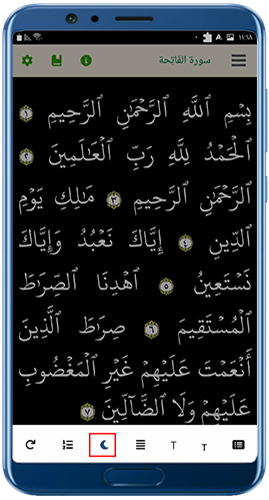 ١١:٦٨
سورة الفاتحة
بِسْمِ ٱللَّهِ ٱلرَّحْمَٰنِ ٱلرَّحِيمِ ١
ٱلْحَمْدُ لِلَّهِ رَبِّ ٱلْعَٰلَمِينَ ٢
ٱلرَّحْمَٰنِ ٱلرَّحِيمِ ٣ مَٰلِكِ يَوْمِ
ٱلدِّينِ ٤ إِيَّاكَ نَعْبُدُ وَإِيَّاكَ
نَسْتَعِينُ ٥ ٱهْدِنَا ٱلصِّرَٰطَ
ٱلْمُسْتَقِيمَ ٦ صِرَٰطَ ٱلَّذِينَ
أَنْعَمْتَ عَلَيْهِمْ غَيْرِ ٱلْمَغْضُوبِ
عَلَيْهِمْ وَلَا ٱلضَّآلِّينَ ٧
T T